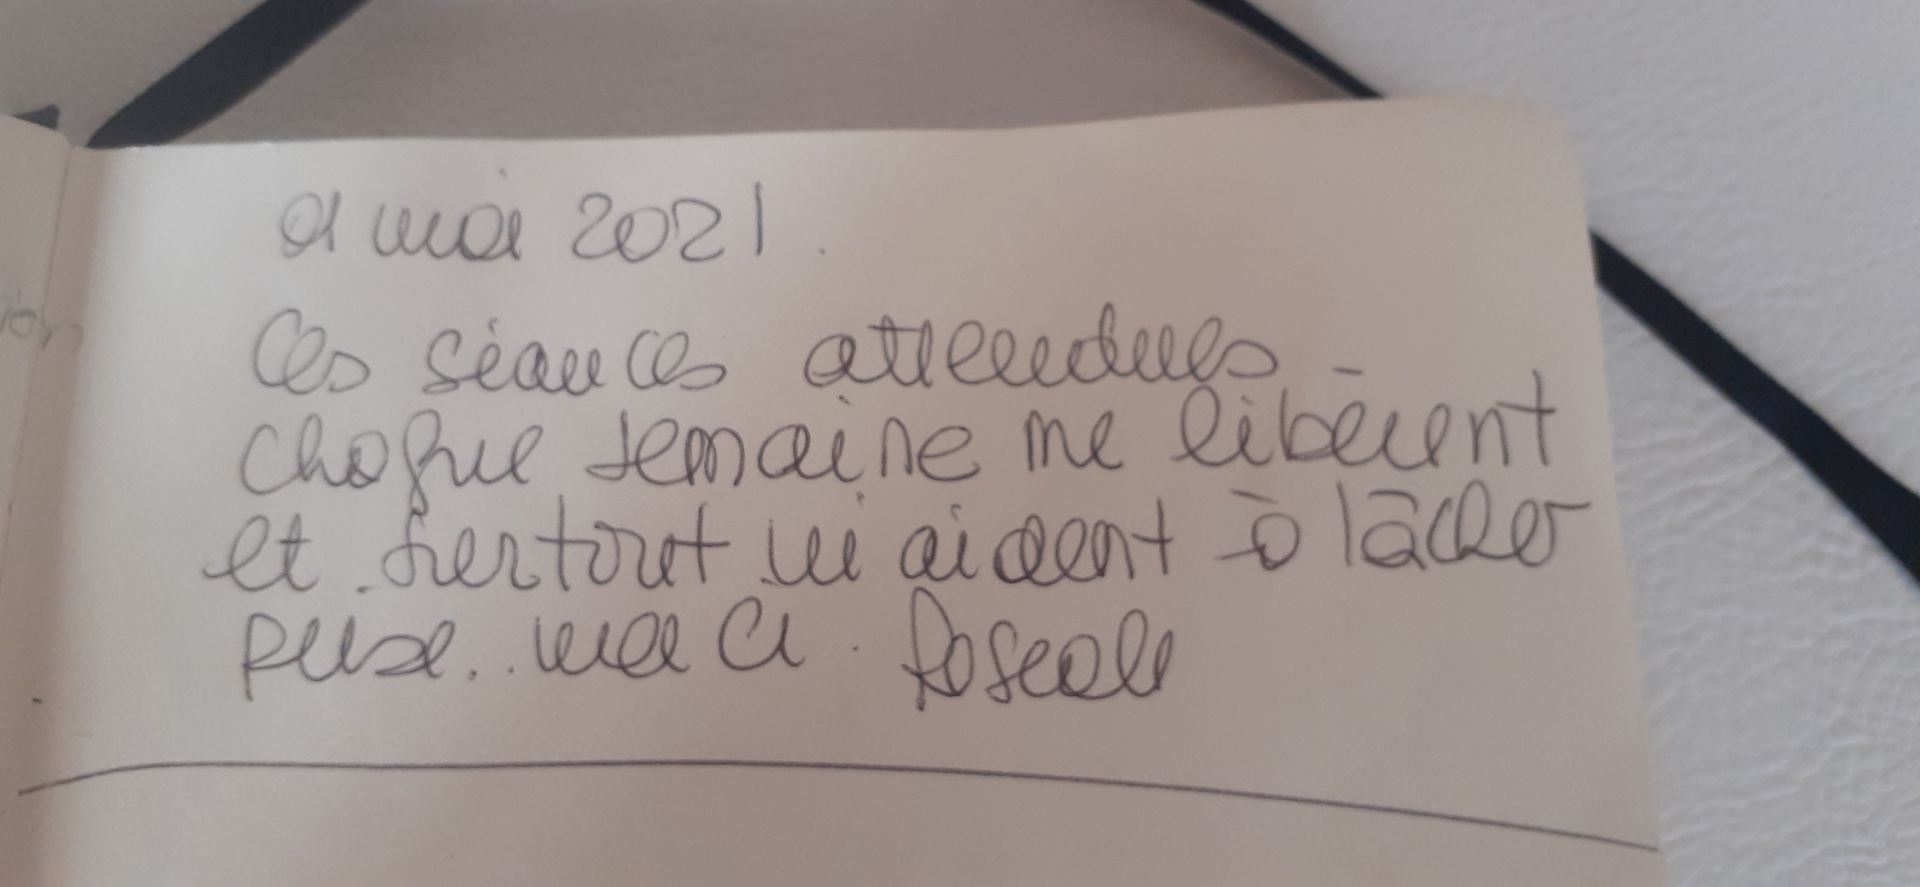 01 mai 2021.
Ces séances attendues
chaque semaine me libèrent
et surtout m'aident à lâcher
prise.. merci. Pascale